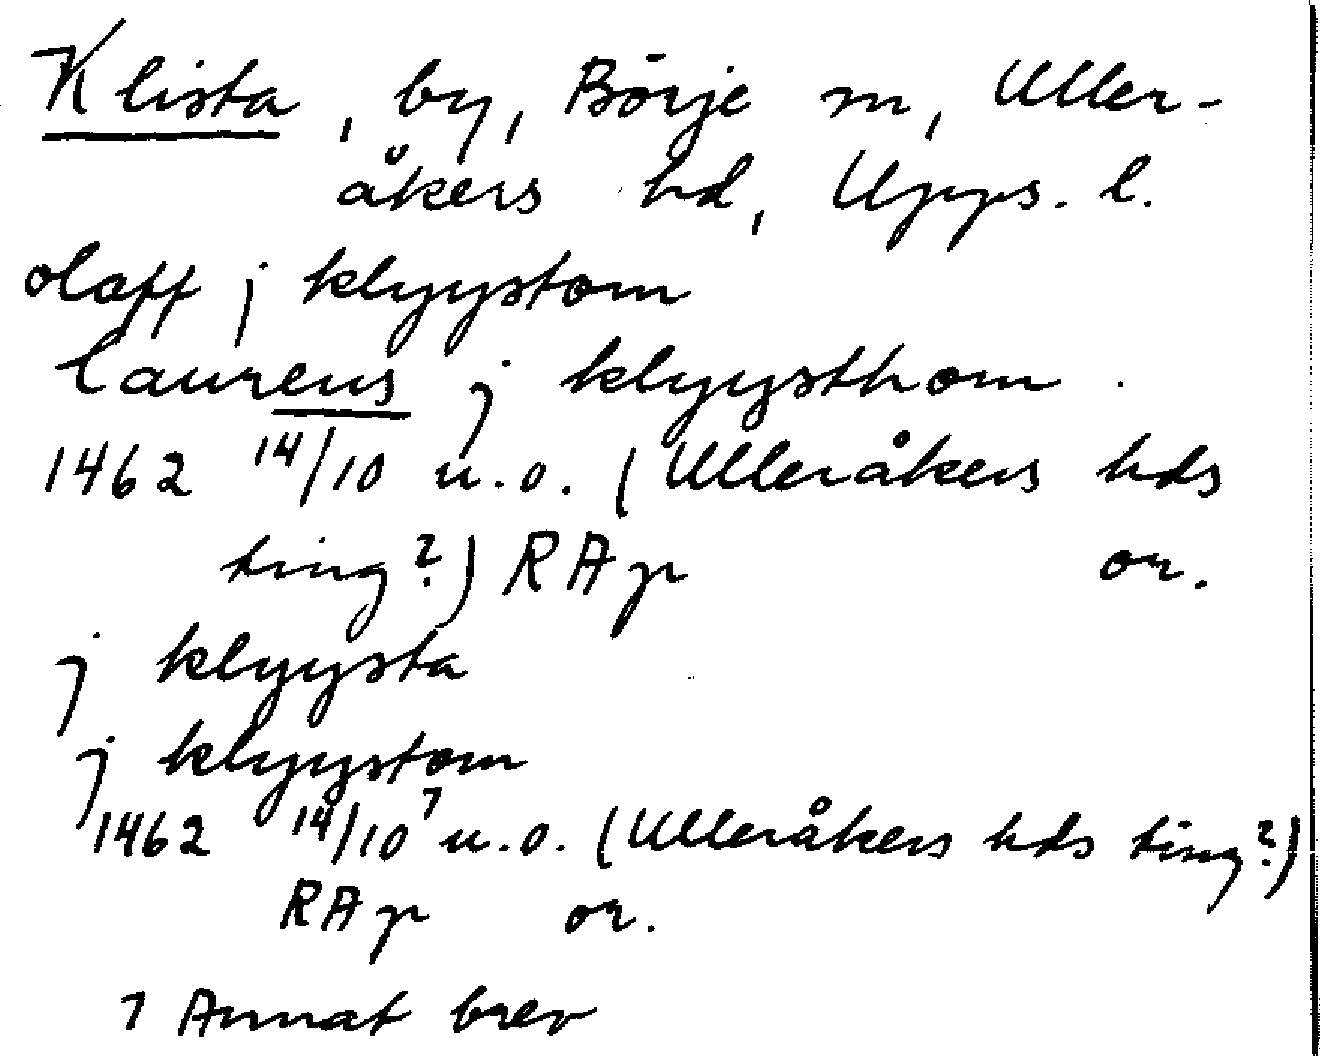 Klista, by, Börje sn, Uller-
åkers hd, Upps. l.
olaff j klyystom
laurens j klyysthom
1462 14/10 u.o. (Ulleråkers hds
ting?) RAp or.
j klyysta
j klyystom
1462 14/10 ⁊ u.o. (Ulleråkers hds ting?)
RAp or.
⁊ Annat brev